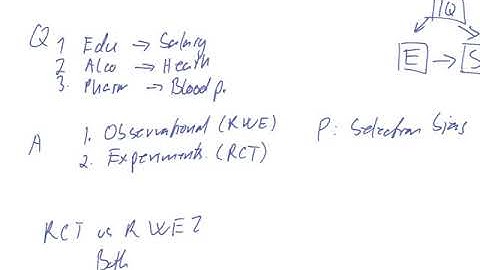 Q
1 Edu → Salary
2 Alco → Health
3. Pharm → Blood p.
A
1. Observational (RWE)
2. Experiments (RCT)
P: Selection bias
RCT vs RWE?
Both
IQ
E → S